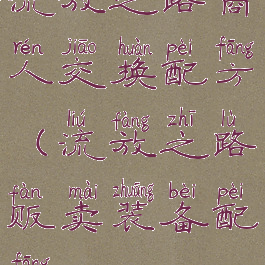 流放之路商
rén jiāo huàn pèi fāng
人交换配方
liú fàng zhī lù
（流放之路
fàn mài zhuāng bèi pèi
贩卖装备配
fāng